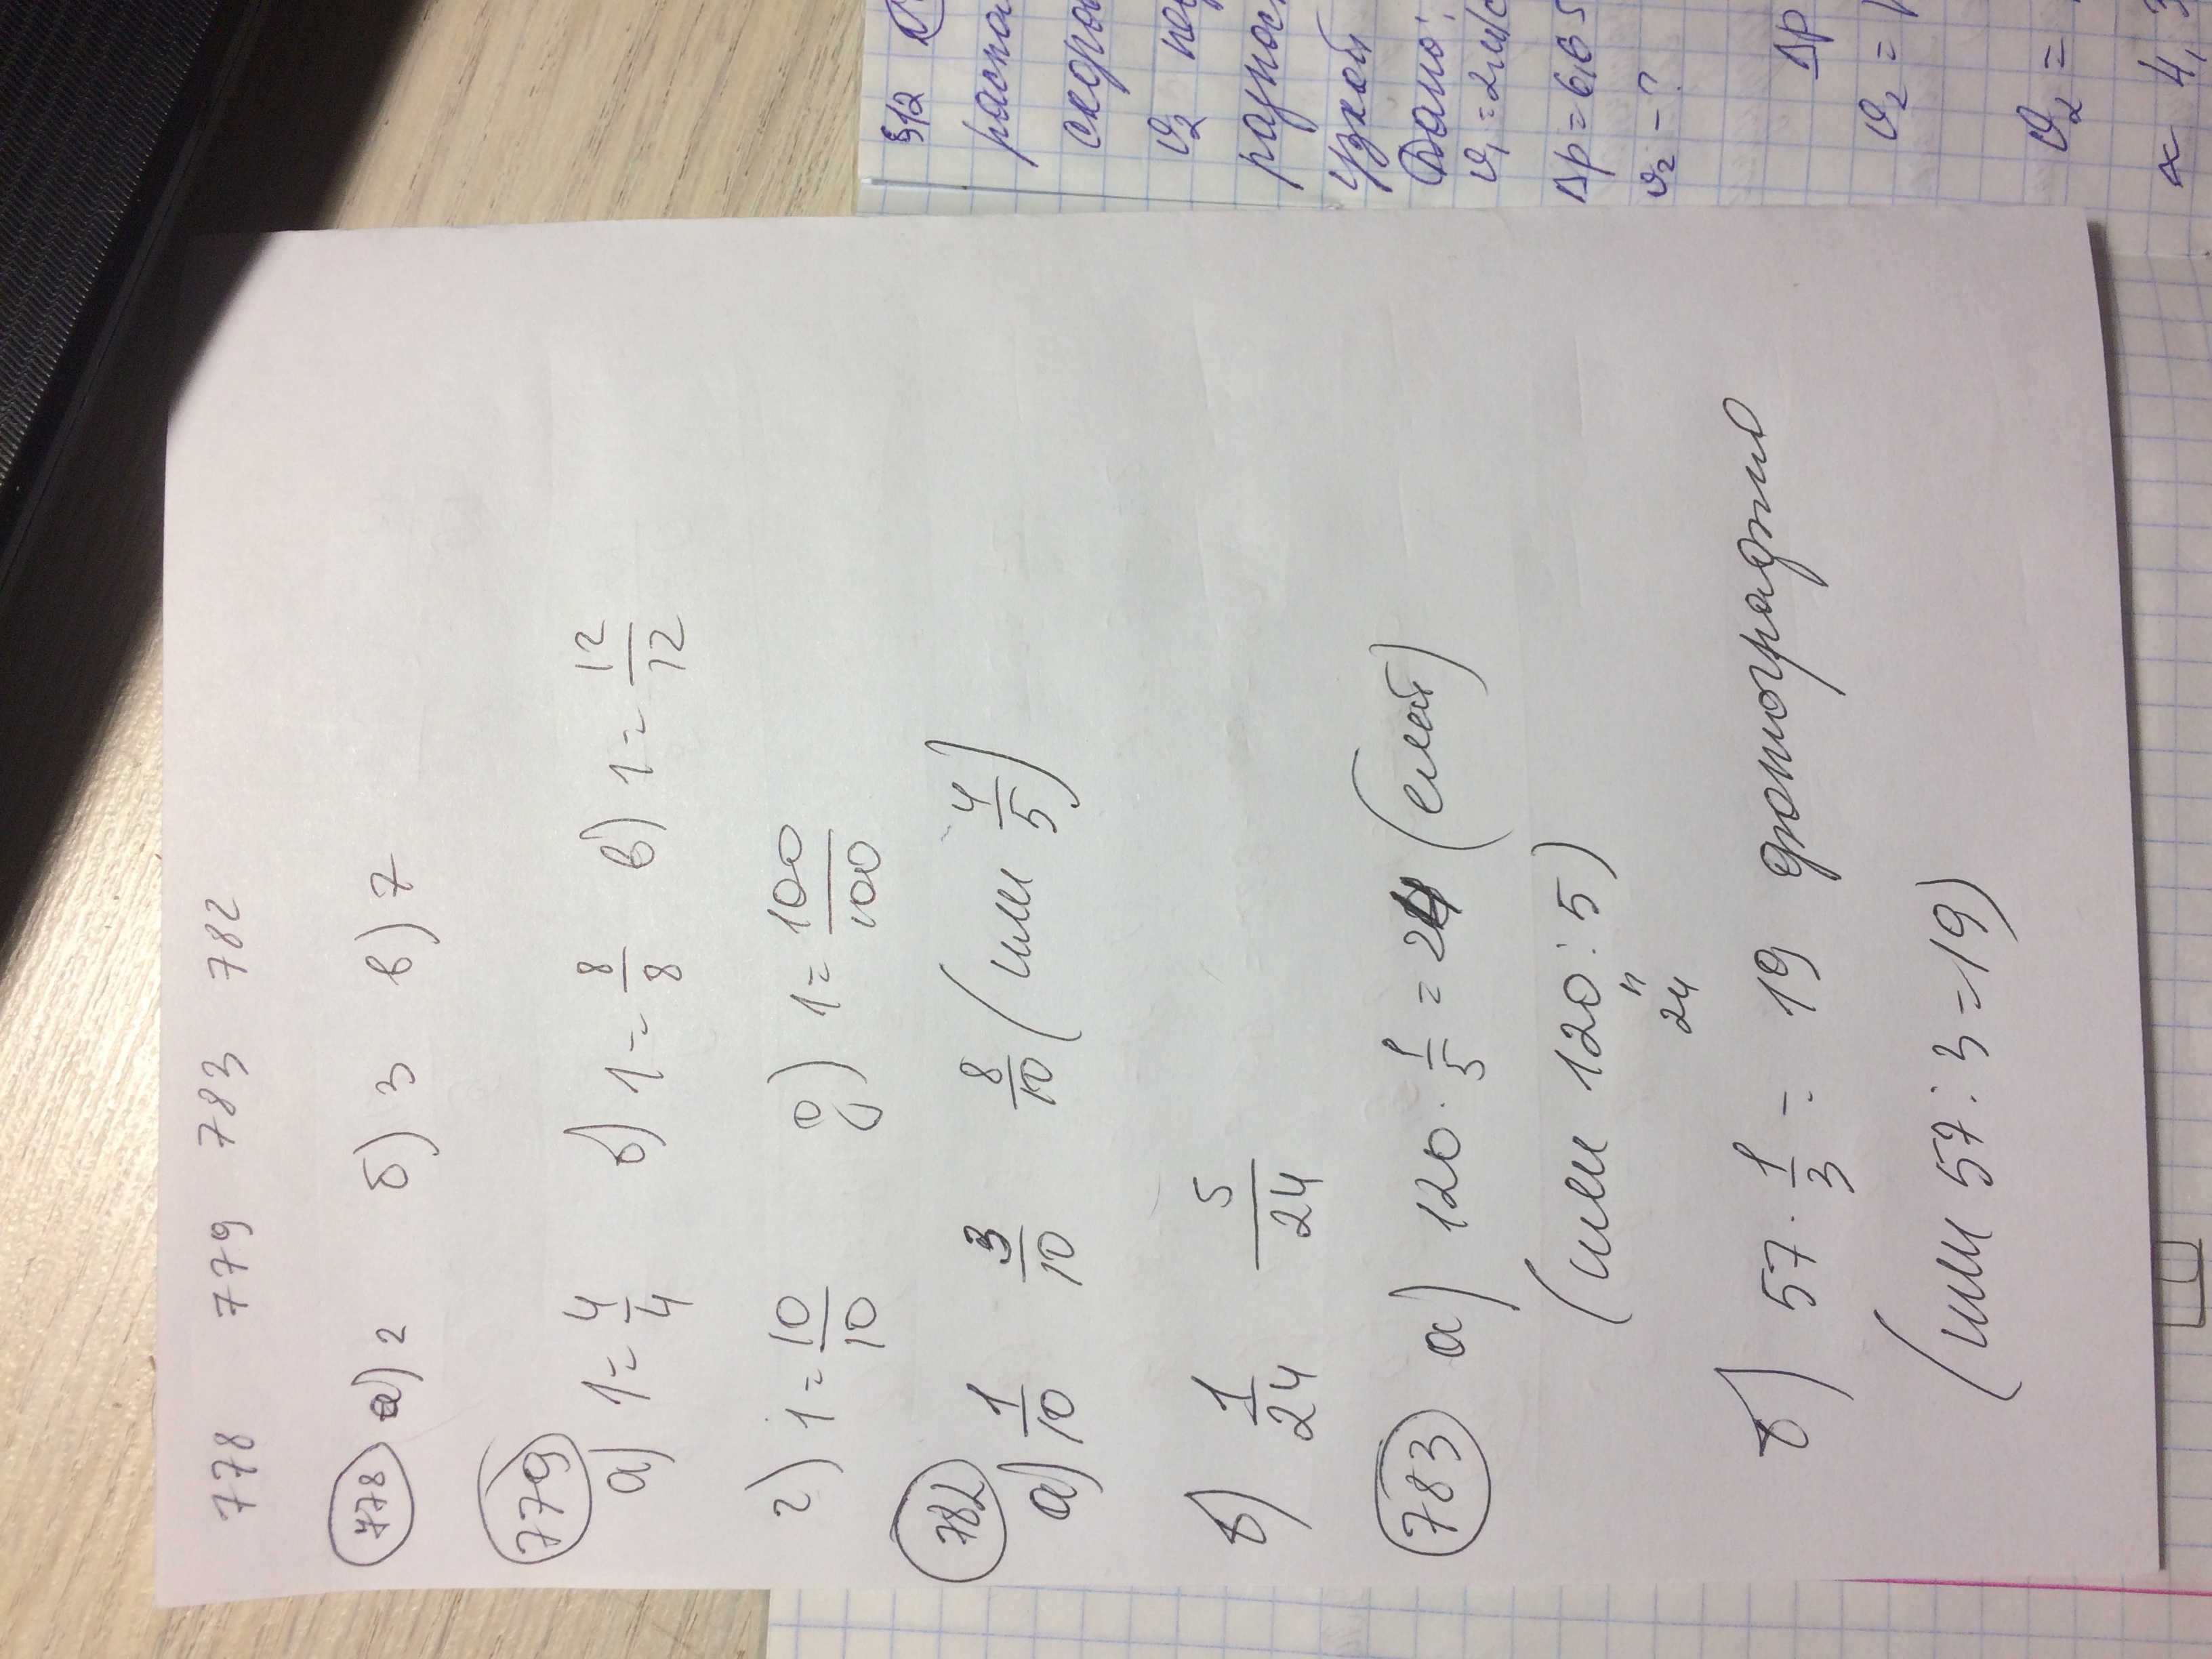 778 779 783 782
778 а) 2 б) 3 в) 7
779
а) 1 = 4/4 б) 1 = 8/8 в) 1 = 12/12
г) 1 = 10/10 д) 1 = 100/100
782
а) 1/10 3/10 8/10 (или 4/5)
б) 1/24 5/24
783 а) 120 · 1/5 = 24 (елей)
(или 120 : 5)
"
24
б) 57 · 1/3 = 19 фотографию
(или 57 : 3 = 19)
§12
распо
скоро
υ₂ под
разнос
узкой
Дано:
υ₁ = 2м/с
Δp = 6,6 5
υ₂ - ?
Δp
υ₂ =
υ₂ =
4,3